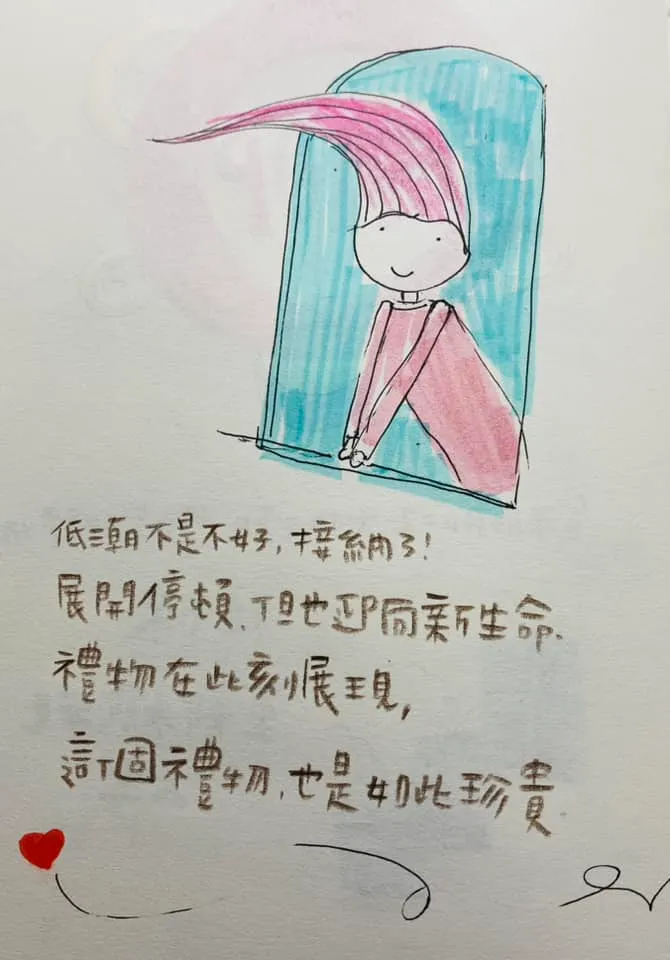 低潮不是不好,接納了!
展開停頓、但也迎向新生命.
禮物在此刻展現,
這個禮物,也是如此珍貴.